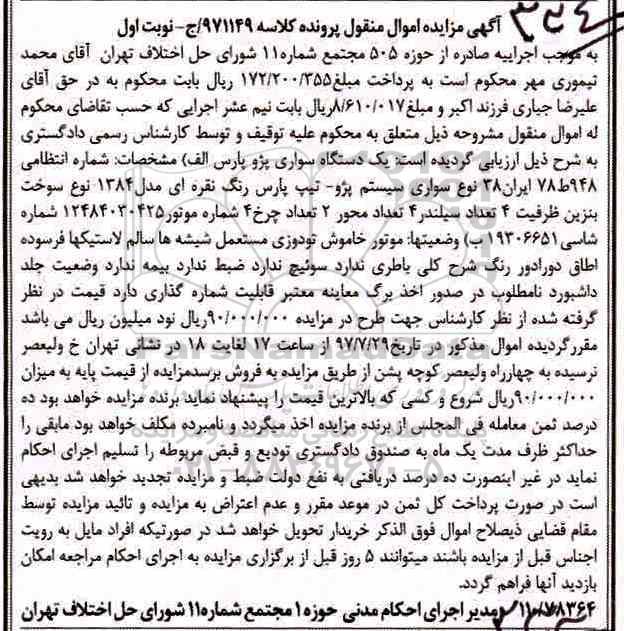 آگهی مزایده اموال منقول پرونده کلاسه ۹۷۱۱۴۹/ج- نوبت اول
به موجب اجراییه صادره از حوزه ۵۰۵ مجتمع شماره۱۱ شورای حل اختلاف تهران آقای محمد
تیموری مهر محکوم است به پرداخت مبلغ۱۷۲/۲۰۰/۳۵۵ ریال بابت محکوم به در حق آقای
علیرضا جیاری فرزند اکبر و مبلغ۸/۶۱۰/۰۱۷ریال بابت نیم عشر اجرایی که حسب تقاضای محکوم
له اموال منقول مشروحه ذیل متعلق به محکوم علیه توقیف و توسط کارشناس رسمی دادگستری
به شرح ذیل ارزیابی گردیده است: یک دستگاه سواری پژو پارس الف) مشخصات: شماره انتظامی
۹۴۸ط۷۸ ایران۳۸ نوع سواری سیستم پژو- تیپ پارس رنگ نقره ای مدل۱۳۸۴ نوع سوخت
بنزین ظرفیت ۴ تعداد سیلندر۴ تعداد محور ۲ تعداد چرخ۴ شماره موتور۱۲۴۸۴۰۳۰۴۲۵ شماره
شاسی۱۹۳۰۶۶۵۱ ب) وضعیتها: موتور خاموش تودوزی مستعمل شیشه ها سالم لاستیکها فرسوده
اطاق دورادور رنگ شرح کلی یاطری ندارد سوئیچ ندارد ضبط ندارد بیمه ندارد وضعیت جلد
داشبورد نامطلوب در صدور اخذ برگ معاینه معتبر قابلیت شماره گذاری دارد قیمت در نظر
گرفته شده از نظر کارشناس جهت طرح در مزایده ۹۰/۰۰۰/۰۰۰ریال نود میلیون ریال می باشد
مقررگردیده اموال مذکور در تاریخ۹۷/۷/۲۹ از ساعت ۱۷ لغایت ۱۸ در نشانی تهران خ ولیعصر
نرسیده به چهارراه ولیعصر کوچه پشن از طریق مزایده به فروش برسدمزایده از قیمت پایه به میزان
۹۰/۰۰۰/۰۰۰ریال شروع و کسی که بالاترین قیمت را پیشنهاد نماید برنده مزایده خواهد بود ده
درصد ثمن معامله فی المجلس از برنده مزایده اخذ میگردد و نامبرده مکلف خواهد بود مابقی را
حداکثر ظرف مدت یک ماه به صندوق دادگستری تودیع و قبض مربوطه را تسلیم اجرای احکام
نماید در غیر اینصورت ده درصد دریافتی به نفع دولت ضبط و مزایده تجدید خواهد شد بدیهی
است در صورت پرداخت کل ثمن در موعد مقرر و عدم اعتراض به مزایده و تائید مزایده توسط
مقام قضایی ذیصلاح اموال فوق الذکر خریدار تحویل خواهد شد در صورتیکه افراد مایل به رویت
اجناس قبل از مزایده باشند میتوانند ۵ روز قبل از برگزاری مزایده به اجرای احکام مراجعه امکان
بازدید آنها فراهم گردد.
۱۱۰/۷۸۳۶۴ مدیر اجرای احکام مدنی حوزه ۱ مجتمع شماره۱۱ شورای حل اختلاف تهران